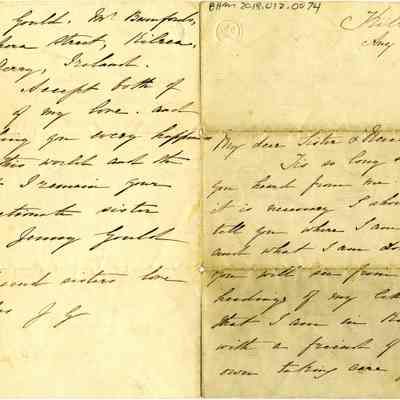 Gould. Mr Bumfords,
Street, Kilrea,
Derry, Ireland.
Accept both of
of my love. and
you every happin
this world and the
I remain your
sister
Jenny Gould
sisters love
J G
BHM 2019.012.0074
Kil
Aug
My dear Sister &
Tis so long
you heard from me
it is necessary I shou
tell you where I am
and what I am do
you will see from
headings of my let
that I am in
with a friend of
own taking care